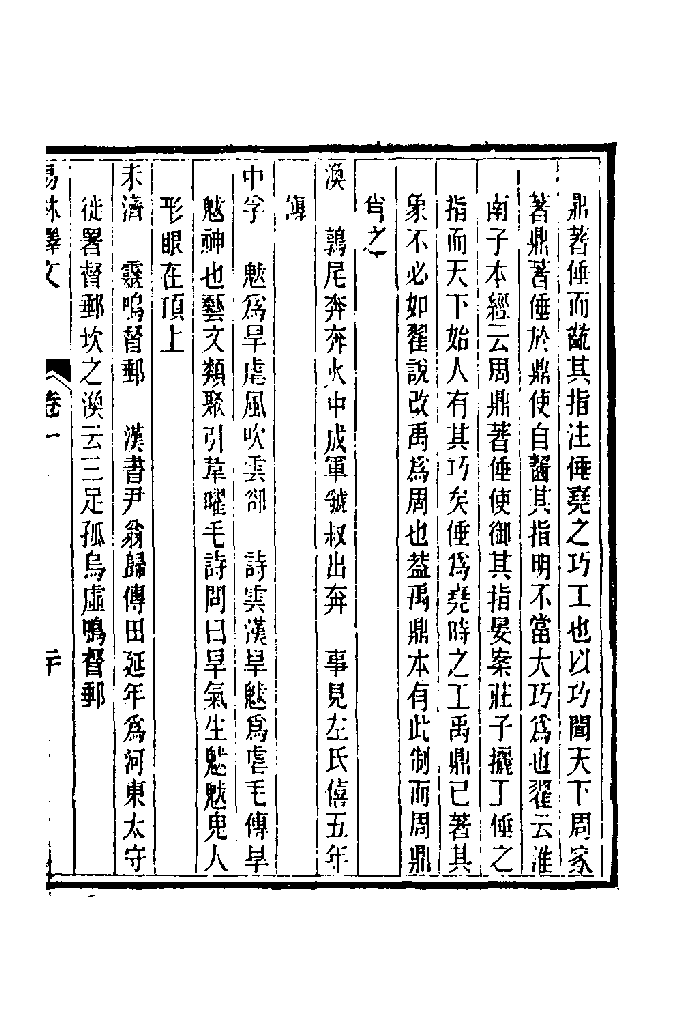 鼎著倕而齕其指注倕堯之巧工也以巧聞天下周家
著鼎著倕於鼎使自齧其指明不當大巧爲也翟云淮
南子本經云周鼎著倕使銜其指晏案莊子攦工倕之
指而天下始人有其巧矣倕爲堯時之工禹鼎已著其
象不必如翟說改禹爲周也葢禹鼎本有此制而周鼎
肖之
渙　鶉尾奔奔火中成軍虢叔出奔　事見左氏僖五年
傳
中孚　魃爲旱虐風吹雲卻　詩雲漢旱魃爲虐毛傳旱
魃神也藝文類聚引韋曜毛詩問曰旱氣生魃魃鬼人
形眼在頂上
未濟　鳴督郵　漢書尹翁歸傳田延年爲河東太守
徙署督郵坎之渙云三足孤烏虛鳴督郵
易林釋文　卷一　二十